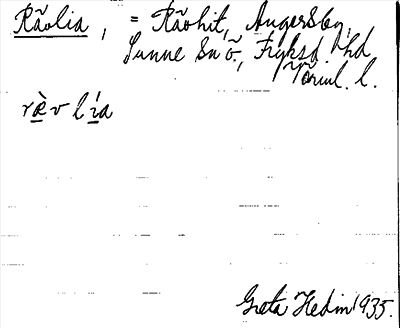 Råolia, = Råohit, Angersby,
Sunne Sn ö., Fryksd. hd
Värml. l.
rævlia
Greta Hedin 1935.